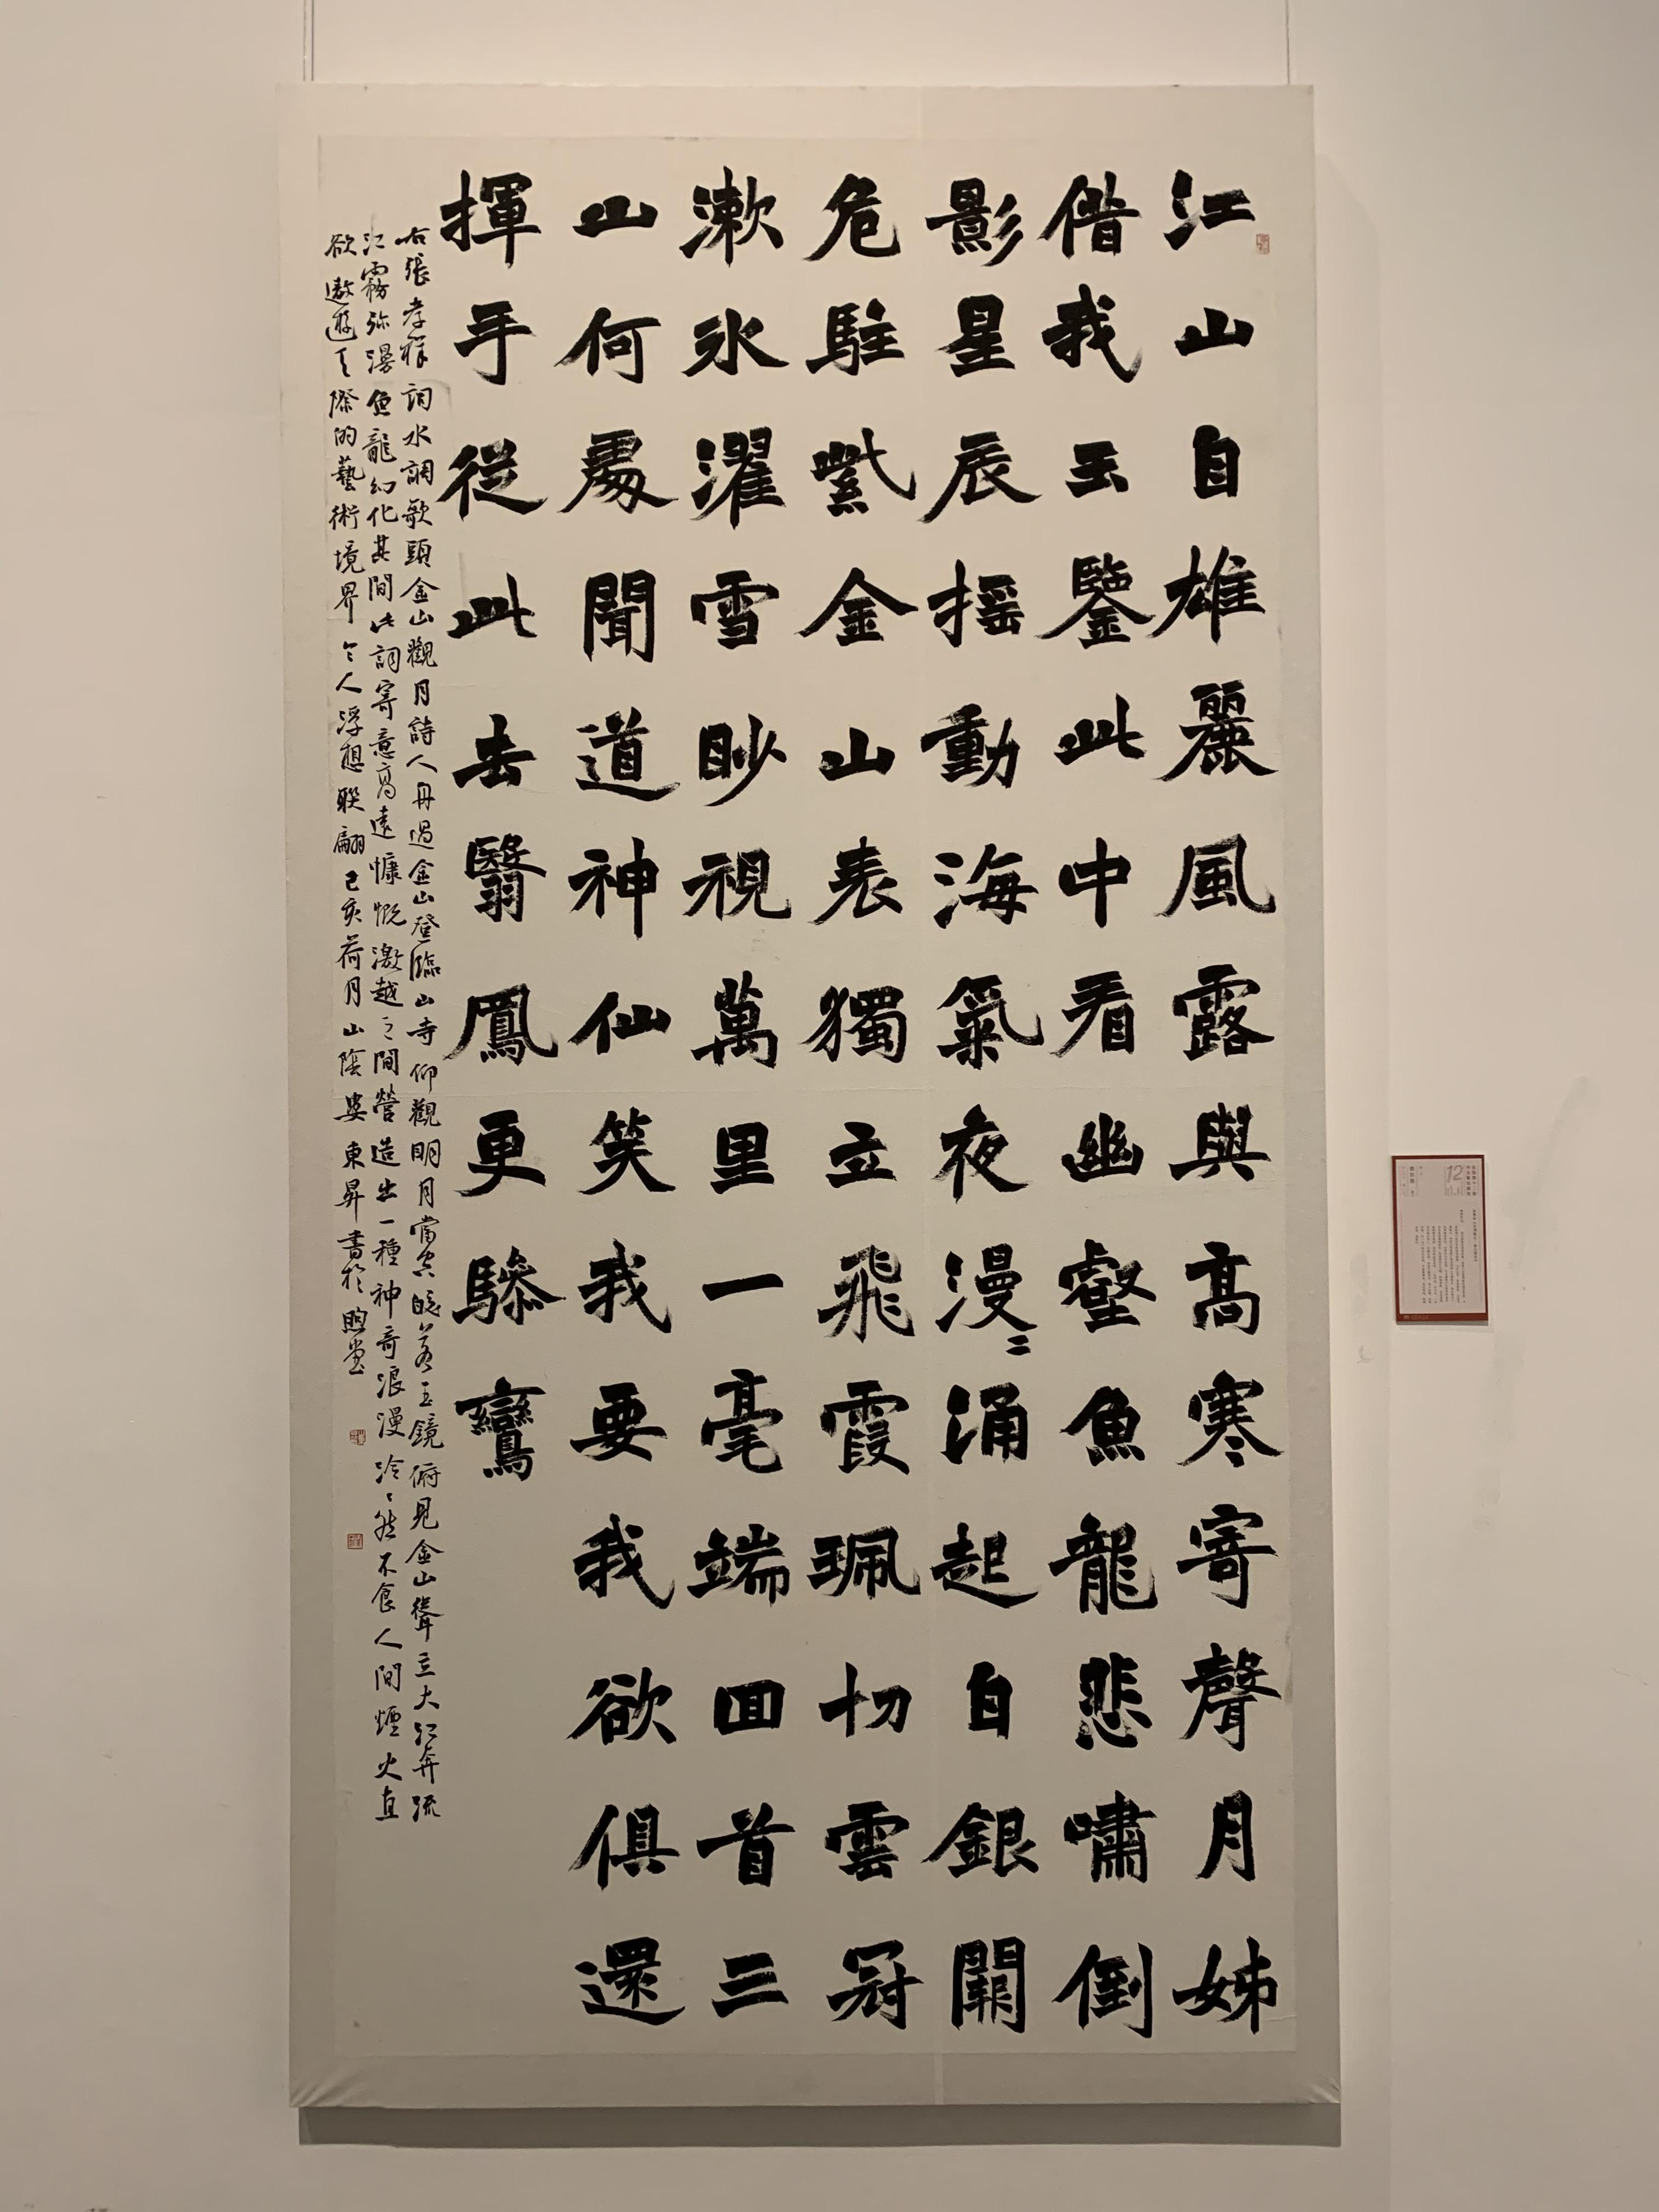 江山自雄麗風露與高寒寄聲月姊
借我玉鑒此中看幽壑魚龍悲嘯倒
影星辰摇動海氣夜漫〻涌起白銀闕
危駐紫金山表獨立飛霞珮切雲冠
漱冰濯雪眇視萬里一毫端回首三
山何處聞道神仙笑我要我欲俱還
揮手從此去翳鳳更驂鸞
右張孝祥詞水調歌頭金山觀月詩人舟過金山登臨山寺仰觀明月當空皎若玉鏡俯見金山聳立大江奔流
江霧弥漫魚龍幻化其間此詞寄意高遠慷慨激越之間營造出一種神奇浪漫泠〻然不食人間煙火直
欲遨遊天際的藝術境界令人浮想聯翩己亥荷月山陰婁東昇書於煦堂